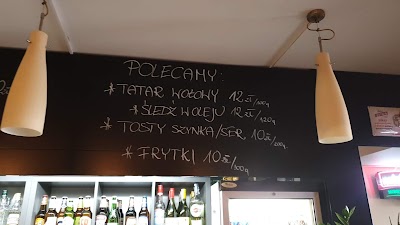 POLECAMY:
* TATAR WOŁOWY 12 zł/100g
* ŚLEDŹ W OLEJU 12 zł/120g
* TOSTY SZYNKA/SER 10 zł/200g
* FRYTKI 10 zł/100g